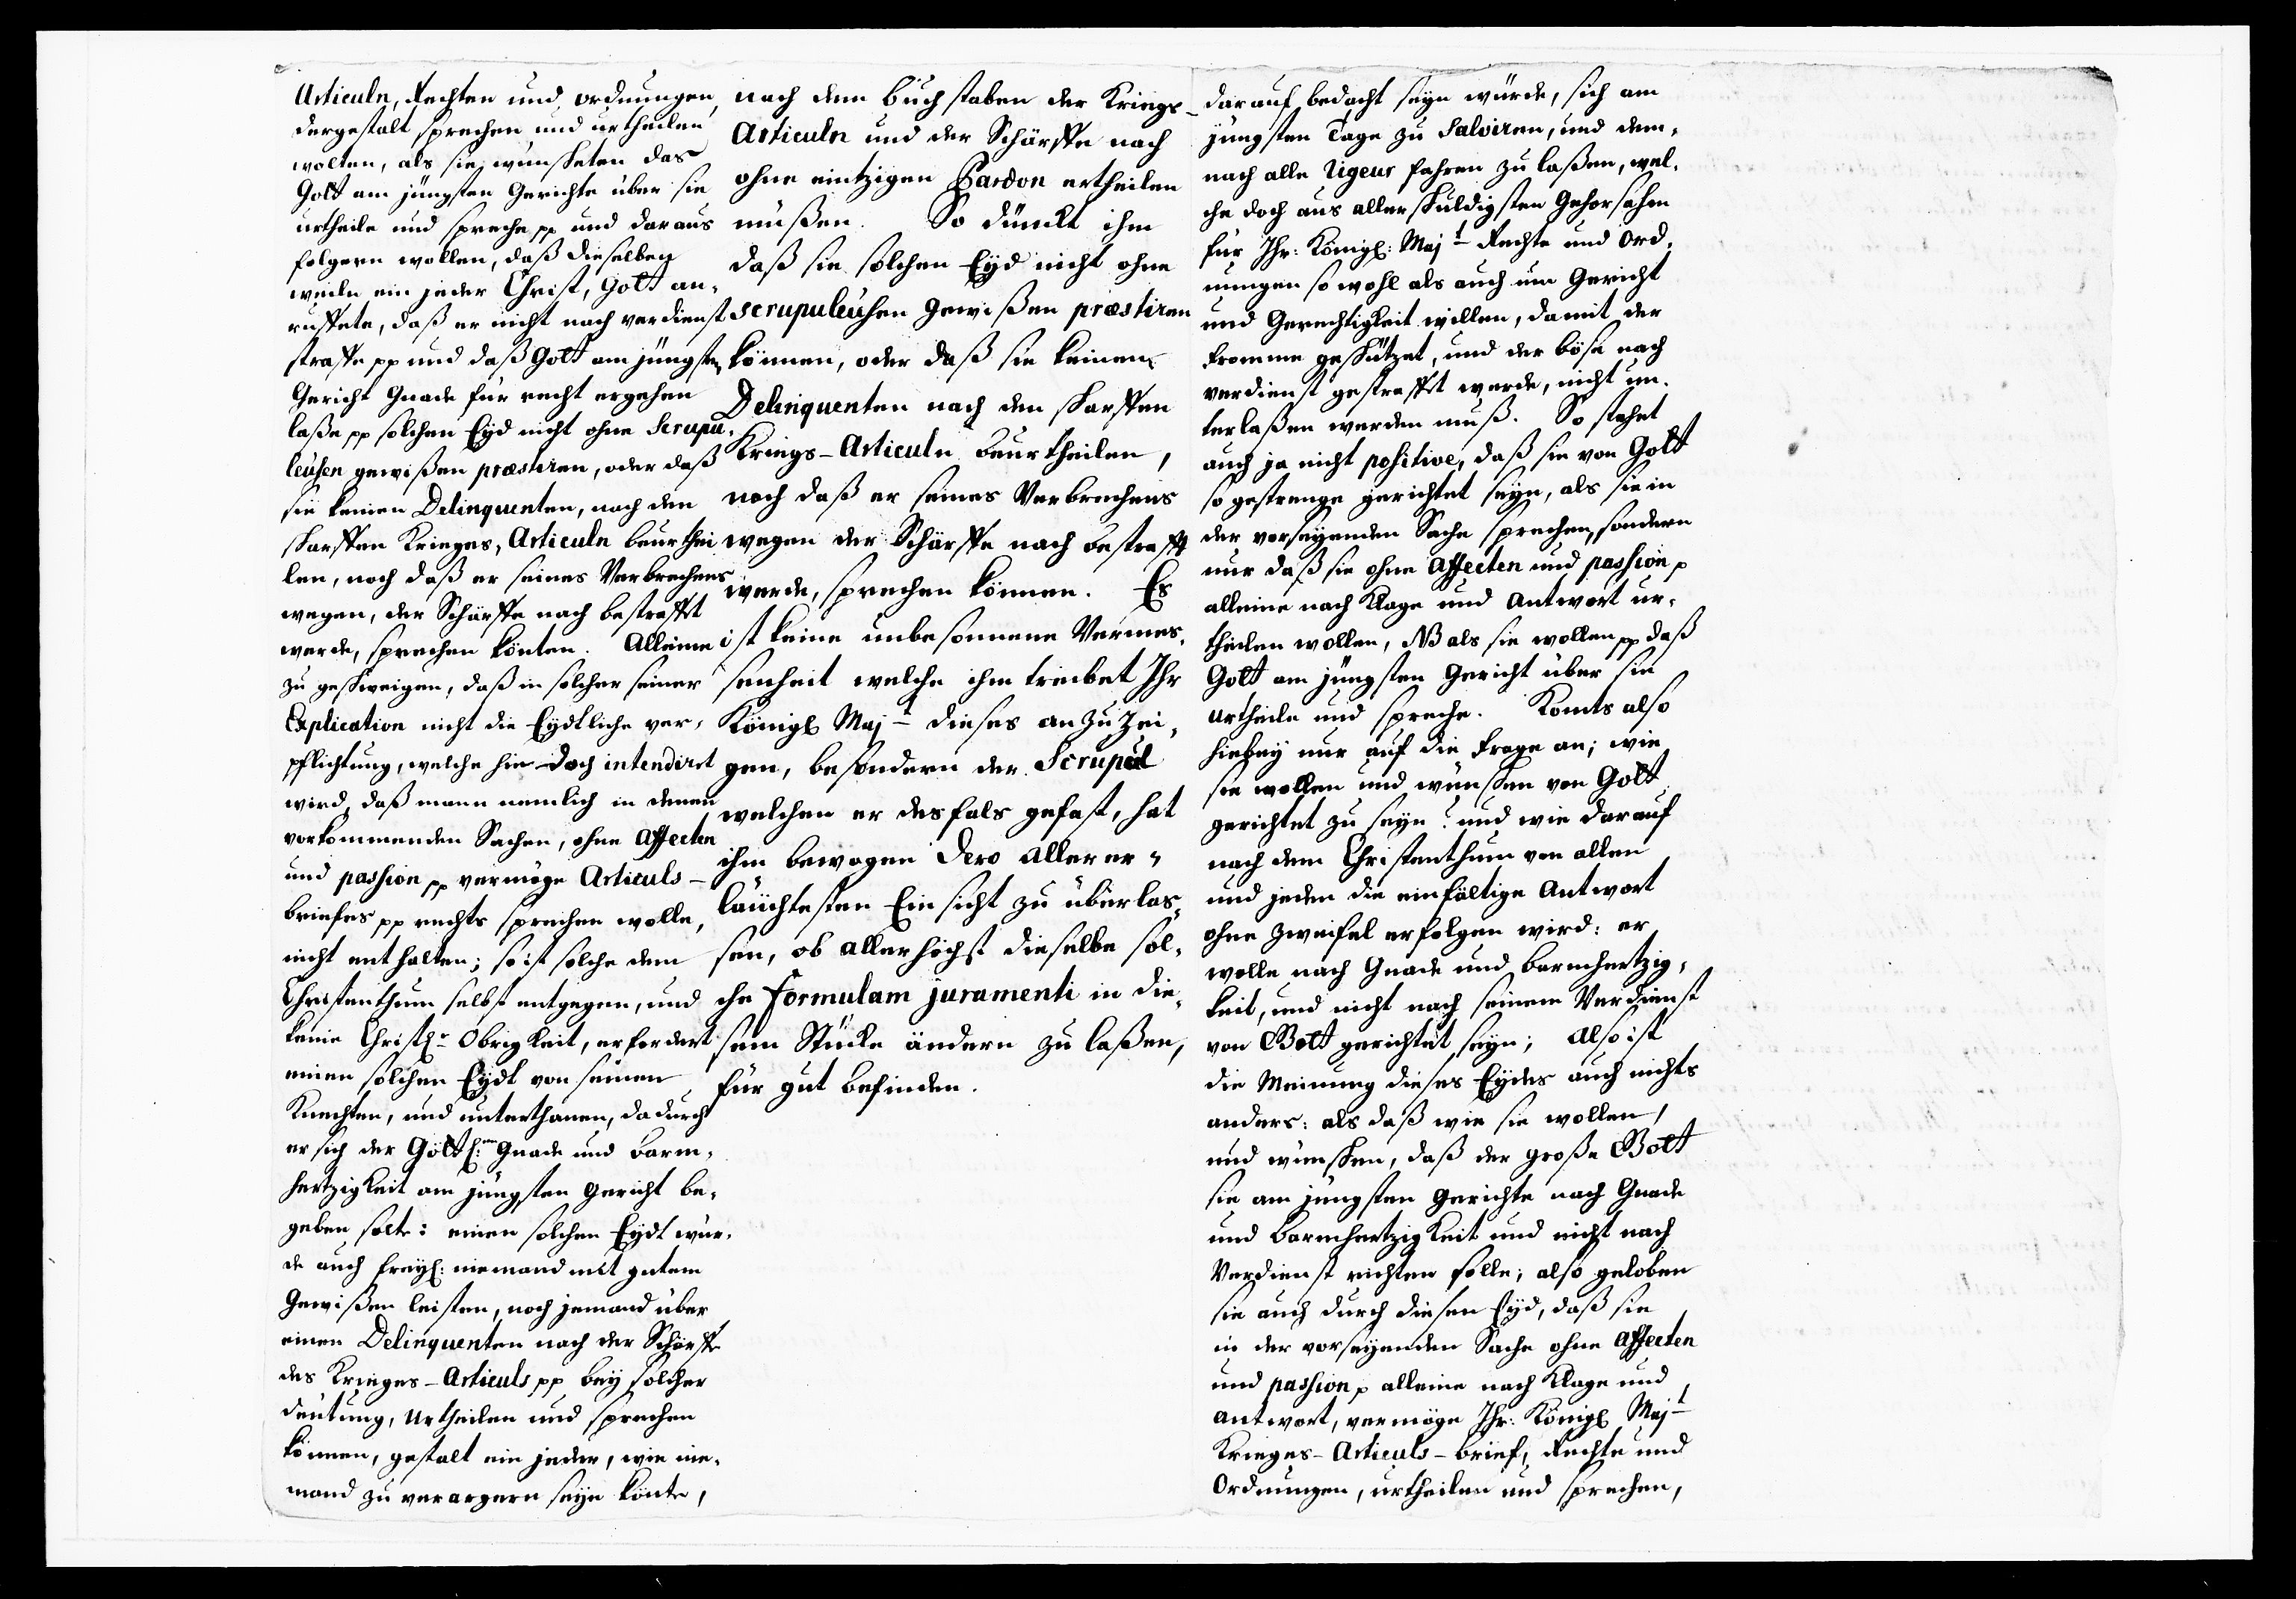 Articuln, Rechten und ordnungen,
dergestalt sprechen und urtheilen
wolten, als sie wünscheten das
Gott am jüngsten Gerichte über sie
urtheile und spreche pp und daraus
folgern wollen, daß dieselben
weiln ein jeder Christ, Gott an-
ruffete, daß er nicht nach verdienst
straffe pp und daß Gott am jüngsten
Gericht Gnade für recht ergehen
laße pp solchen Eyd nicht ohne Scrupu-
leusen gewißen præstiren, oder daß
sie keinen Delinquenten, nach den
scharffen Krieges, Articuln beurthei
len, noch daß er seines Verbrechens
wegen, der Schärffe nach bestraffet
werde, sprechen könten. Alleine
zu geschweigen, daß in solcher seiner
Explication nicht die Eydtliche ver-
pflichtung, welche hie doch intendirt
wird, daß mann nemlich in denen
vorkommenden Sachen, ohne Affecten
und passion pp vermöge Articuls-
briefes pp rechts sprechen wolle,
nicht enthalten; so ist solche dem
Christenthum selbst entgegen, und
keine Christl. Obrigkeit, erfordert
einen solchen Eydt von seinen
Knechten, und unterthanen, dadurch
er sich der Göttl: Gnade und barm-
hertzigkeit am jüngsten Gericht be-
geben solte: einen solchen Eydt wür-
de auch freyl: niemand mit gutem
Gewißen leisten, noch jemand über
einen Delinquenten nach der Schärffe
des Krieges-Articuls pp bey solcher
deutung, Urtheilen und sprechen
können, gestalt ein jeder, wie nie-
mand zu verargern seyn könte,
nach dem buchstaben der Kriegs-
Articuln und der Schärffe nach
ohne eintzigen Pardon ertheilen
müßen. So dünckt ihm
daß sie solchen Eyd nicht ohne
scrupuleusen gewißen præstiren
können, oder daß sie keinen
Delinquenten nach den scharffen
Kriegs-Articuln beurtheilen,
noch daß er seines Verbrechens
wegen der Schärffe nach bestrafft
werde, sprechen können. Es
ist keine unbesonnene Vermes-
senheit welche ihm treibet Ihr
Königl Majt dieses anzuzei-
gen, besondern der Scrupul
welchen er desfals gefast, hat
ihm bewogen dero allerer-
läüchtesten Einsicht zu überlas-
sen, ob allerhöchst dieselbe sol-
che formulam juramenti in die-
sem Stücke ändern zu laßen,
für gut befinden.
darauf bedacht seyn würde, sich am
jüngsten Tage zu Salviren, und dem-
nach alle rigeur fahren zu laßen, wel-
che doch aus allerschuldigsten Gehorsahm
für Ihr: Königl: Majt Rechte und Ord-
nungen so wohl als auch um Gericht
und Gerechtigkeit willen, damit der
fromme geschützet, und der böse nach
verdienst gestraffet werde, nicht un-
terlaßen werden muß. So stehet
auch ja nicht positive, daß sie von Gott
so gestrenge gerichtet seyn, als sie in
der vorseyenden Sache sprechen, sondern
nur daß sie ohne Affecten und passion p
alleine nach Klage und Antwort ur-
theilen wollen, NB als sie wollen pp daß
Gott am jüngsten Gericht über sie
urtheile und spreche. Komts also
hiebey nur auf die frage an; wie
sie wollen und wünschen von Gott
gerichtet zu seyn? und wie darauf
nach dem Christenthum von allen
und jeden die einfältige Antwort
ohne Zweifel erfolgen wird: er
wolle nach Gnade und barmhertzig-
keit, und nicht nach seinem Verdienst
von Gott gerichtet seyn; Also ist
die Meinung dieses Eydes auch nichts
anders: als daß wie sie wollen,
und wünschen, daß der große Gott
sie am jüngsten Gerichte nach Gnade
und barmhertzigkeit und nicht nach
Verdienst richten solle; also geloben
sie auch durch diesen Eyd, daß sie
in der vorseyenden Sache ohne Affecten
und passion p alleine nach Klage und
antwort, vermöge Ihr: Königl Majt
Krieges-Articuls-brief, Rechte und
Ordnungen, urtheilen und sprechen,